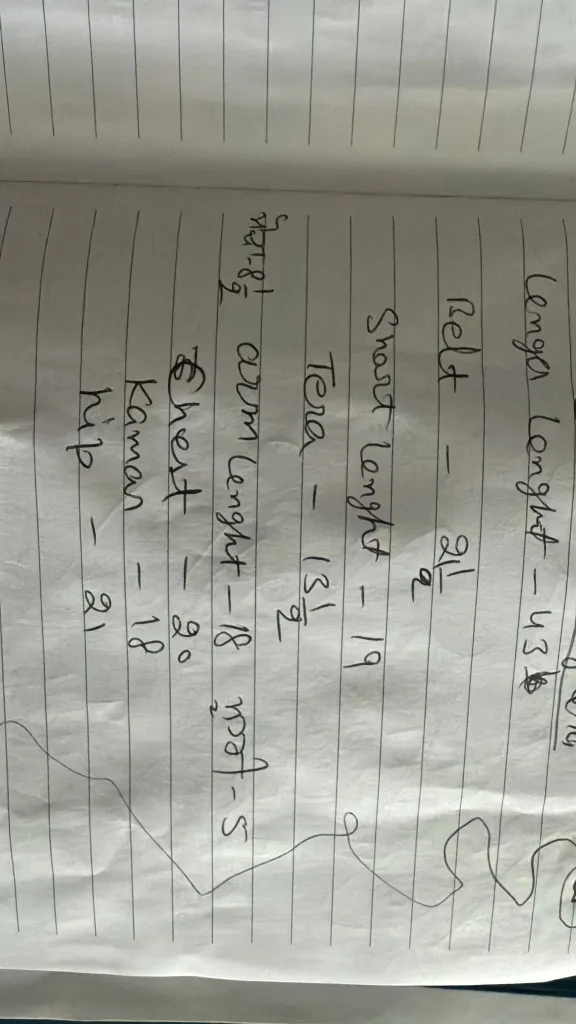 Lenga lenght - 43
Belt - 21 1/2
Shart lenght - 19
Tera - 13 1/2
arm lenght - 18
Chest - 20
Kamar - 18
hip - 21